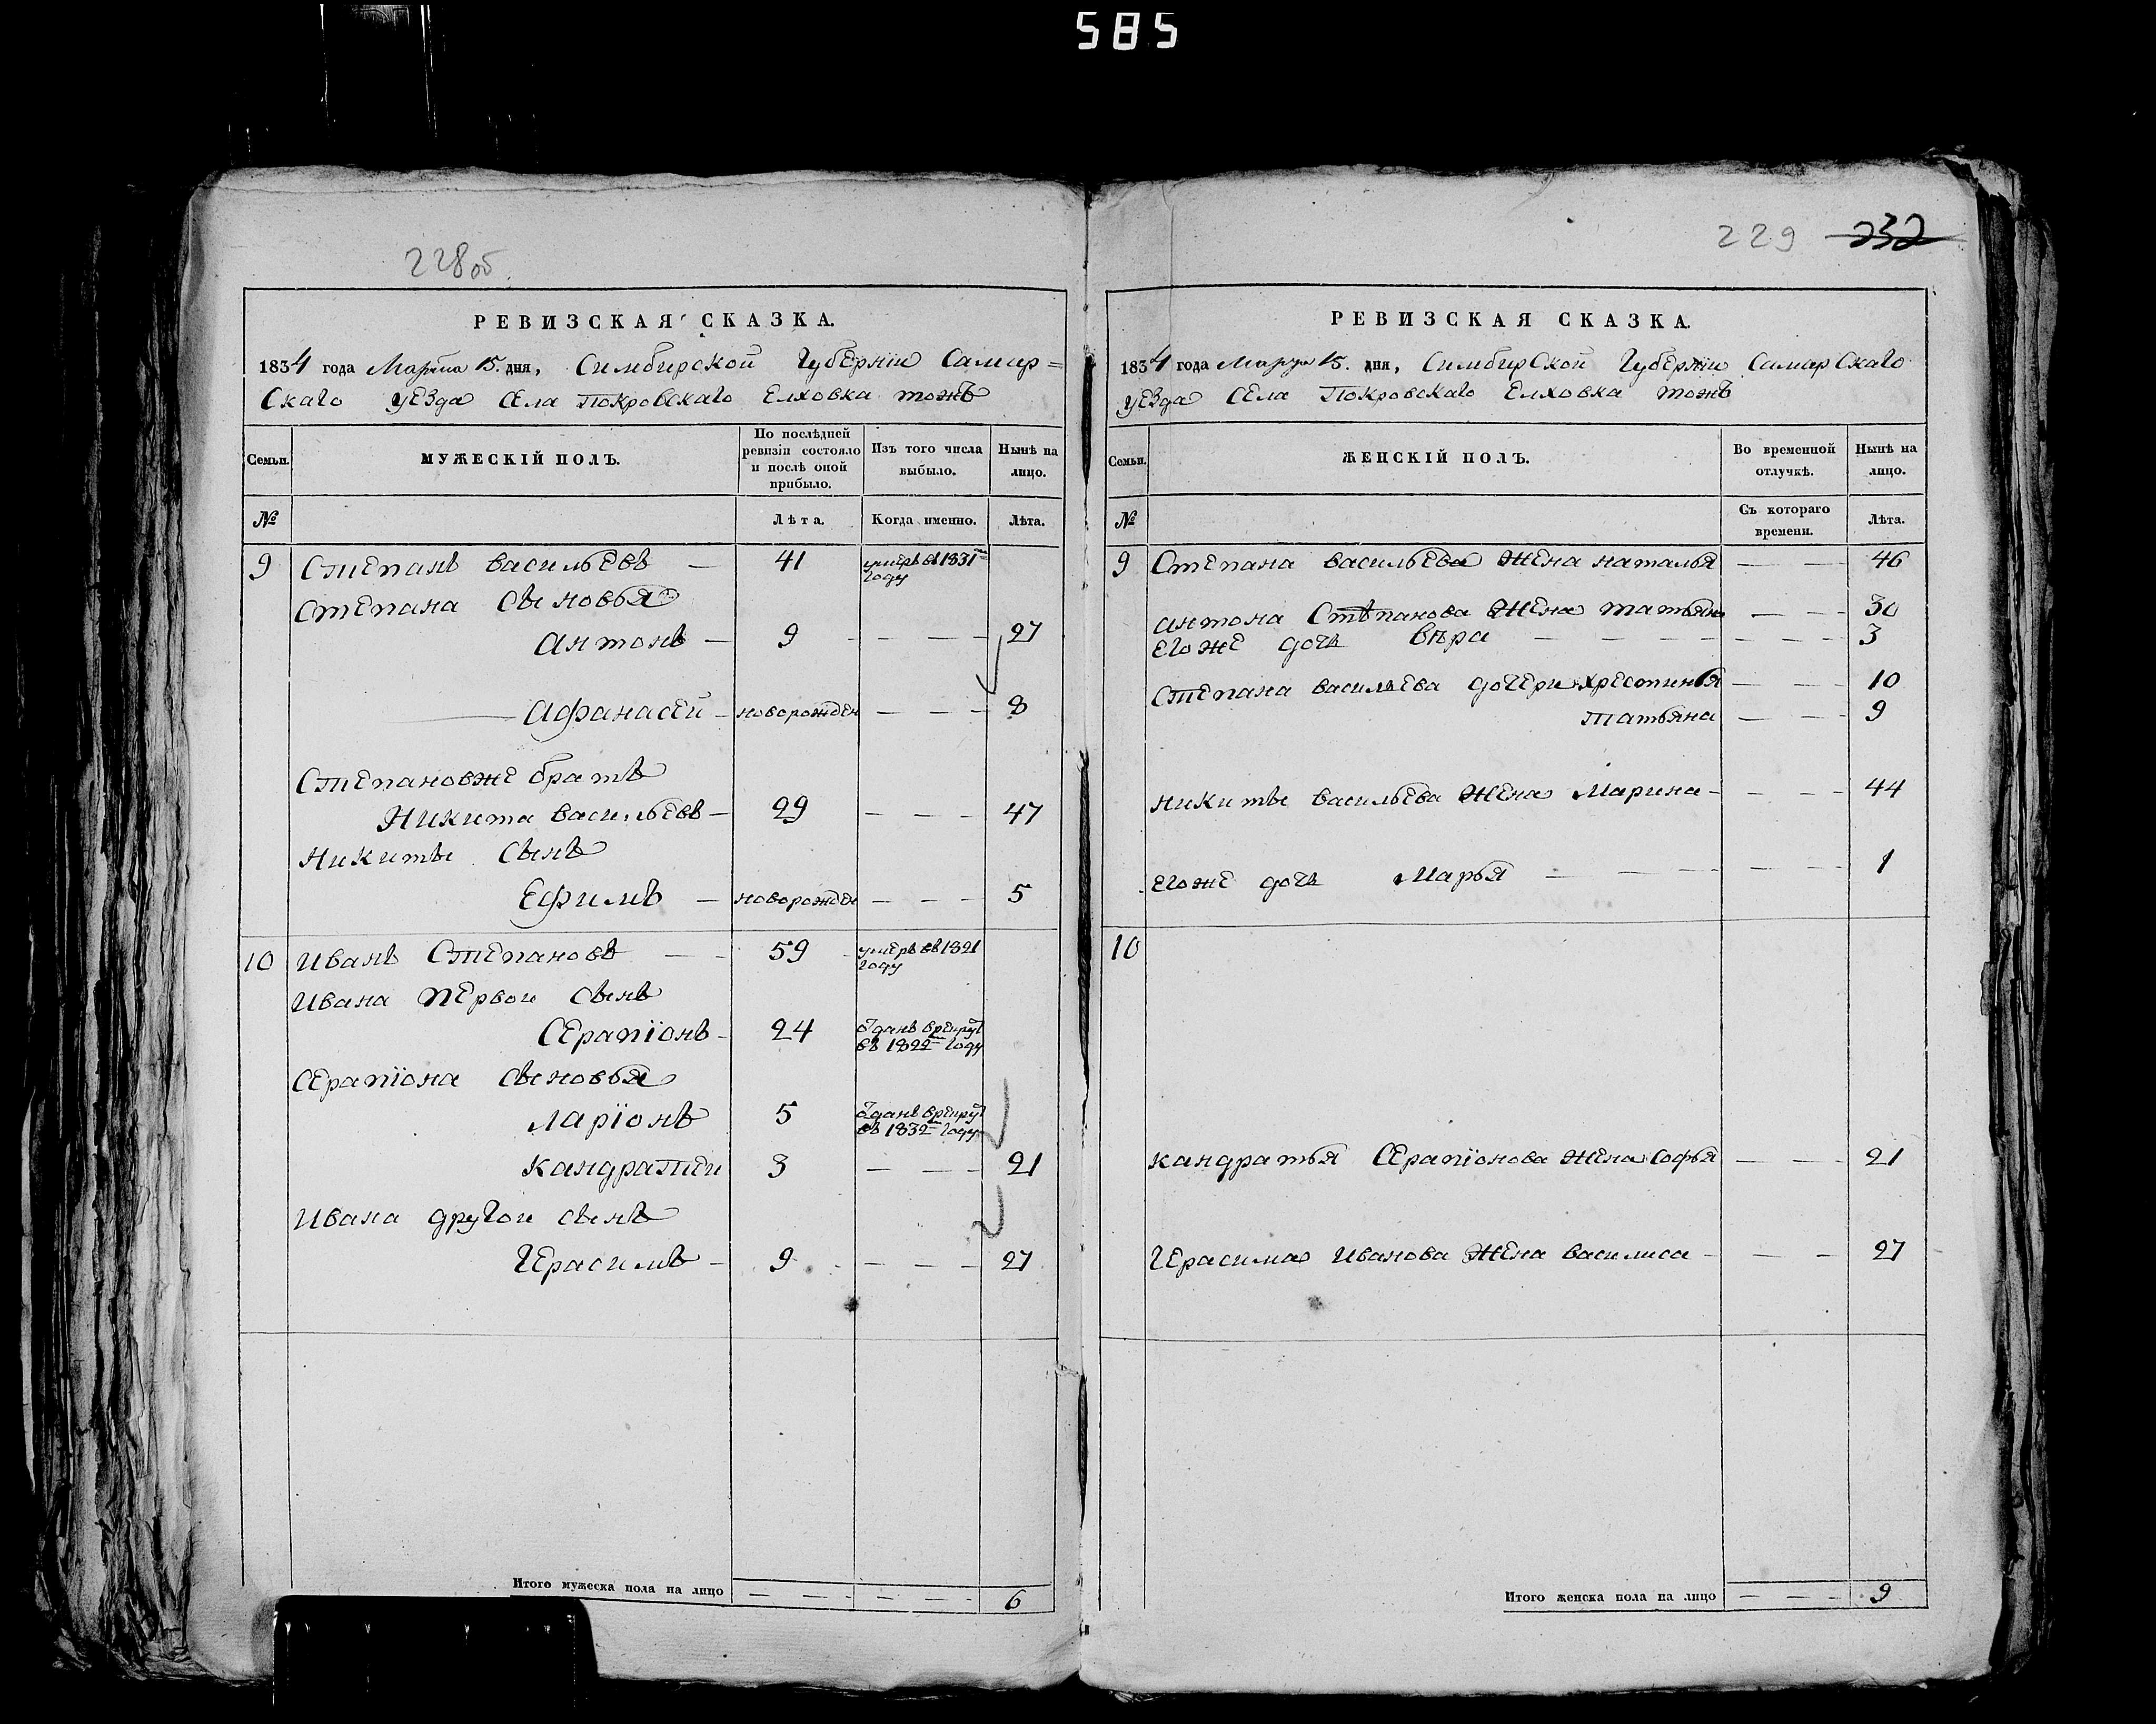 585
228об.
РЕВИЗСКАЯ СКАЗКА.
1834 года Марта 15. дня, Симбирской Губернiи Самар=
скаго уезда Села Покровскаго Елховка тожъ
Семьи.
МУЖЕСКІЙ ПОЛЪ.
По послѣдней ревизіи состояло и послѣ оной прибыло.
Изъ того числа выбыло.
Нынѣ на лицо.
№
Лѣта.
Когда именно.
Лѣта.
9 Степанъ васильевъ — 41 умеръ въ 1831м году
Степана сыновья
Антонъ — 9 - — — 27
Афанасей - новорожден — — 8
Степановже братъ
Никита васильевъ — 29 — — — 47
Никиты сынъ
Ефимъ — новорожден — — — 5
10 Иванъ Степановъ — 59 умеръ въ 1821 году
Ивана первой сынъ
Серапiонъ - 24 отданъ врекруты въ 1822м году
Серапiона сыновья
Ларiонъ 5 отданъ врекруты въ 1832м году
Кандратей 3 — — 21
Ивана другой сынъ
Герасимъ - 9 - — — — 27
Итого мужеска пола на лицо — — — — 6
229 232
РЕВИЗСКАЯ СКАЗКА.
1834 года Марта 15. дня, Симбирской Губернiи Самарскаго
уезда Села Покровскаго Елховка тожъ
Семьи.
ЖЕНСКІЙ ПОЛЪ.
Во временной отлучкѣ.
Нынѣ на лицо.
№
Съ котораго времени.
Лѣта.
9 Степана васильева жена наталья — — 46
антона Степанова жена татьяна — — 30
егоже дочь вѣра — — — — 3
Степана васильева дочери христинья — — 10
татьяна — — 9
никиты васильева жена Марина - — — 44
егоже дочь Марья — — — — 1
10
кандратья Серапiонова жена Софья — — 21
Герасима Иванова жена василиса - — — 27
Итого женска пола на лицо — — 9